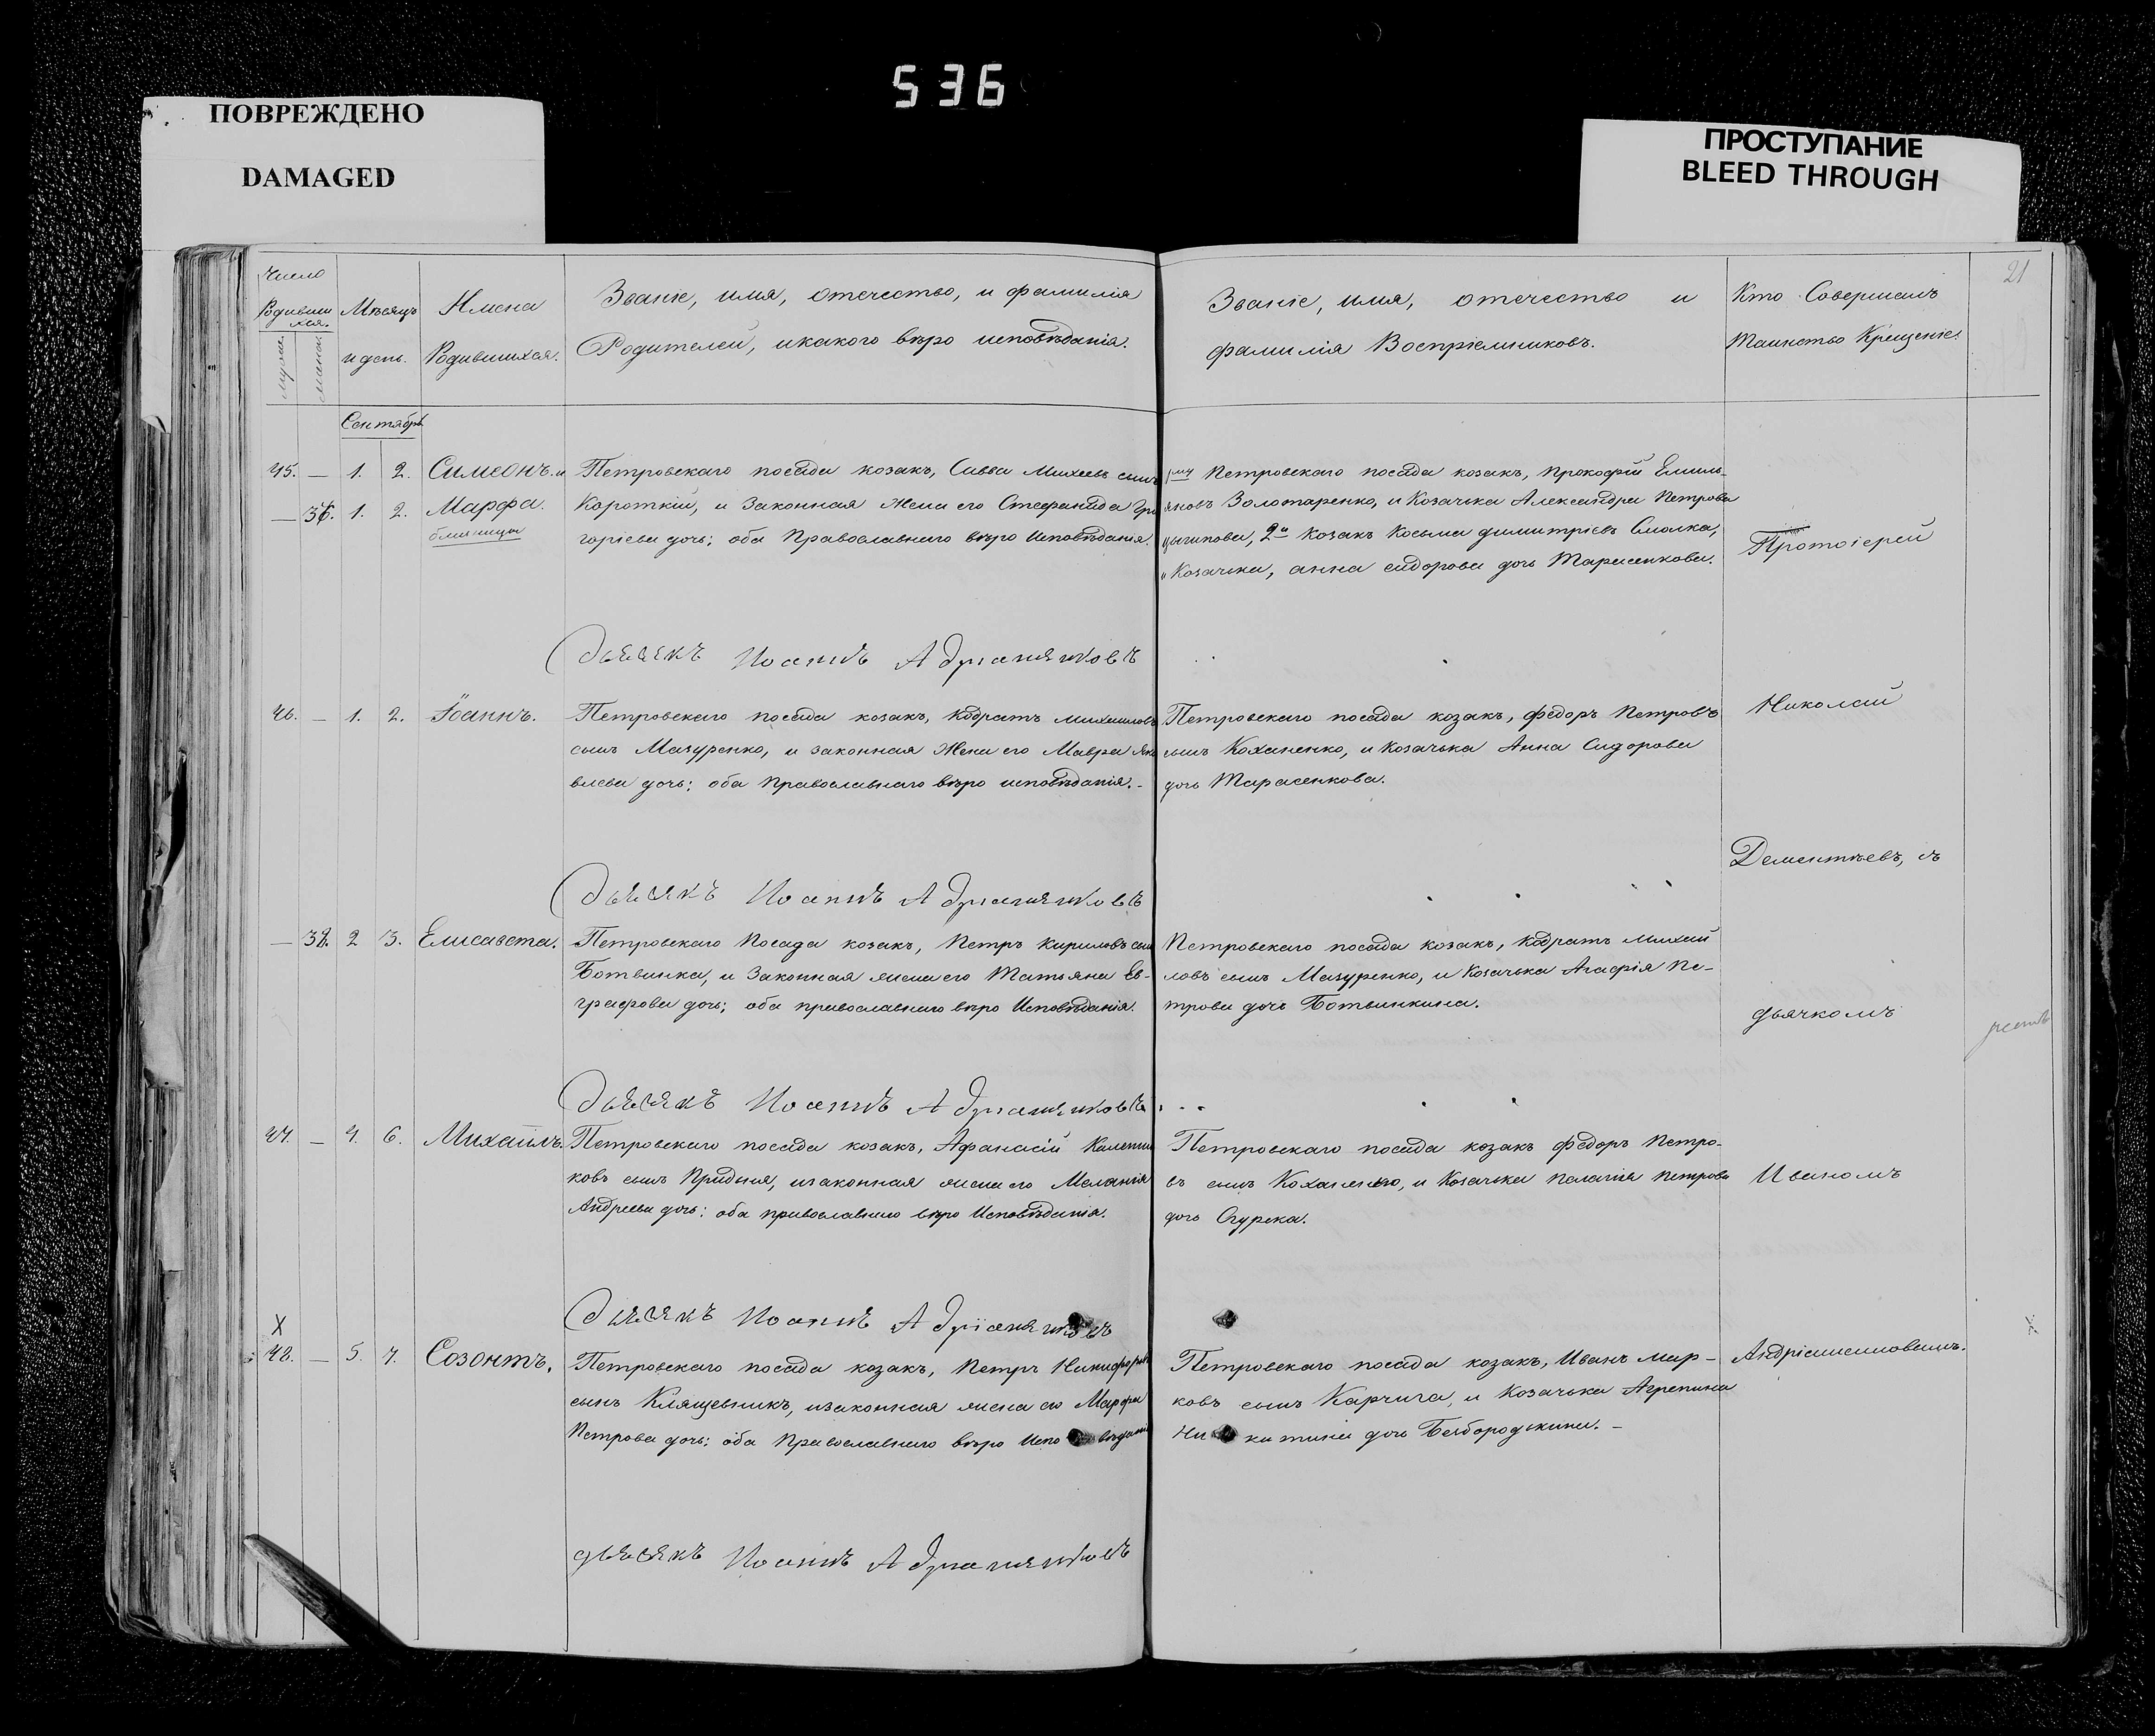 536
ПОВРЕЖДЕНО
DAMAGED
ПРОСТУПАНИЕ
BLEED THROUGH
21
Число Родившихся.
муж. женск.
Мѣсяцъ и день.
Имена Родившихся.
Званіе, имя, отечество, и фамилія
Родителей, икакого вѣро исповѣданія.
Званіе, имя, отечество и
фамилія Воспріемниковъ.
Кто Совершалъ
таинство Крещеніе.
Сентябрь
45. — 1. 2. Симеонъ. и
— 36. 1. 2. Марфа.
близницы
Петровскаго посада козакъ, Савва Михеевъ сынъ
Короткій, и Законная Жена его Стефанида Гри
горіева дочь; оба Православнаго вѣро Исповѣданія.
1му Петровскаго посада козакъ, Прокофій Емиль-
яновъ Золотаренко, и Козачка Александра Петрова
Цыгикова, 2й Козакъ Косьма димитріевъ Смолка,
и Козачька, анна сидорова дочь Тарасенкова.
Протоіерей
Дьячокъ Иоаннъ Адріанниковъ
46. — 1. 2. Іоаннъ.
Петровскаго посада козакъ, Кодратъ михаиловъ
сынъ Мазуренко, и законная Жена его Мавра Яко
влева дочь; оба Православнаго вѣро исповѣданія.-
Петровскаго посада козакъ, федоръ Петровъ
сынъ Коханенко, и Козачька Анна Сидорова
дочь Тарасенкова.
Николай
Дементѣевъ, съ
Дьячокъ Иоаннъ Адріанниковъ
— 38. 2 3. Елисавета.
Петровскаго Посада козакъ, Петръ Кириловъ сынъ
Ботвинка, и Законная жена его Татьяна Ев-
графова дочь; оба православнаго вѣро Исповѣданія.
Петровскаго посада козакъ, Кодратъ михаи
ловъ сынъ Мазуренко, и Козачька Агафія Пе-
трова дочь Ботвинкина.
дьячкомъ
Дьячокъ Иоаннъ Адріанниковъ
47. — 4. 6. Михаилъ.
Петровскаго посада козакъ, Афанасій Калени
ковъ сынъ Придыня, изаконная жена его Меланія
Андреева дочь; оба православнаго вѣро Исповѣданія.
Петровскаго посада козакъ федоръ Петро-
въ сынъ Коханенко, и Козачька Пелагія Петрова
дочь Огурска.
Иваномъ
Дьячокъ Иоаннъ Адріанниковъ
X
48. — 5. 7. Созонтъ.
Петровскаго посада козакъ, Петръ Никифоровъ
сынъ Клящевникъ, изаконная жена его Марфа
Петрова дочь; оба Православнаго вѣро Исповѣданія
Петровскаго посада козакъ, Иванъ Мар-
ковъ сынъ Карчига, и Козачька Агрепина
Никитина дочь Безбородькина. -
Андріанниковымъ.
дьячокъ Иоаннъ Адріанниковъ